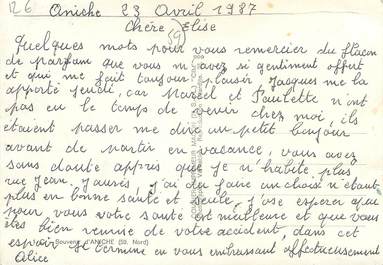 R6 Aniche 23 Avril 1987
Chère Elise
(59)
Quelques mots pour vous remercier du flacon
de parfum que vous m'avez si gentiment offert
et qui me fait toujour plaisir Jacques me la
apporté jeudi, car Marcel et Paulette n'ont
pas eu le temps de venir chez moi, ils
étaient passer me dire un petit bonjour
avant de partir en vacance, vous avez
sans doute appris que je n'habite plus
rue Jean Jaurés, j'ai du faire un choix n'étant
plus en bonne santé et seule, j'ose esperer que
pour vous votre santé est meilleure et que vous
êtes bien remise de votre accident, dans cet
Souvenir d'ANICHE (59. Nord)
espoir je termine en vous embrassant affectueusement
Alice